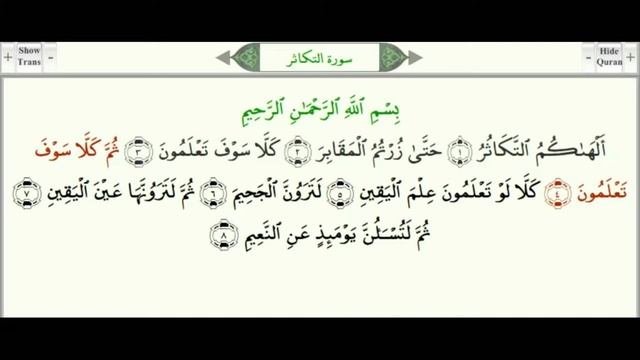 + Show Trans - سورة التكاثر - Hide Quran +
بِسْمِ ٱللَّهِ ٱلرَّحْمَـٰنِ ٱلرَّحِيمِ
أَلْهَىٰكُمُ ٱلتَّكَاثُرُ ١ حَتَّىٰ زُرْتُمُ ٱلْمَقَابِرَ ٢ كَلَّا سَوْفَ تَعْلَمُونَ ٣ ثُمَّ كَلَّا سَوْفَ
تَعْلَمُونَ ٤ كَلَّا لَوْ تَعْلَمُونَ عِلْمَ ٱلْيَقِينِ ٥ لَتَرَوُنَّ ٱلْجَحِيمَ ٦ ثُمَّ لَتَرَوُنَّهَا عَيْنَ ٱلْيَقِينِ ٧
ثُمَّ لَتُسْـَٔلُنَّ يَوْمَئِذٍ عَنِ ٱلنَّعِيمِ ٨